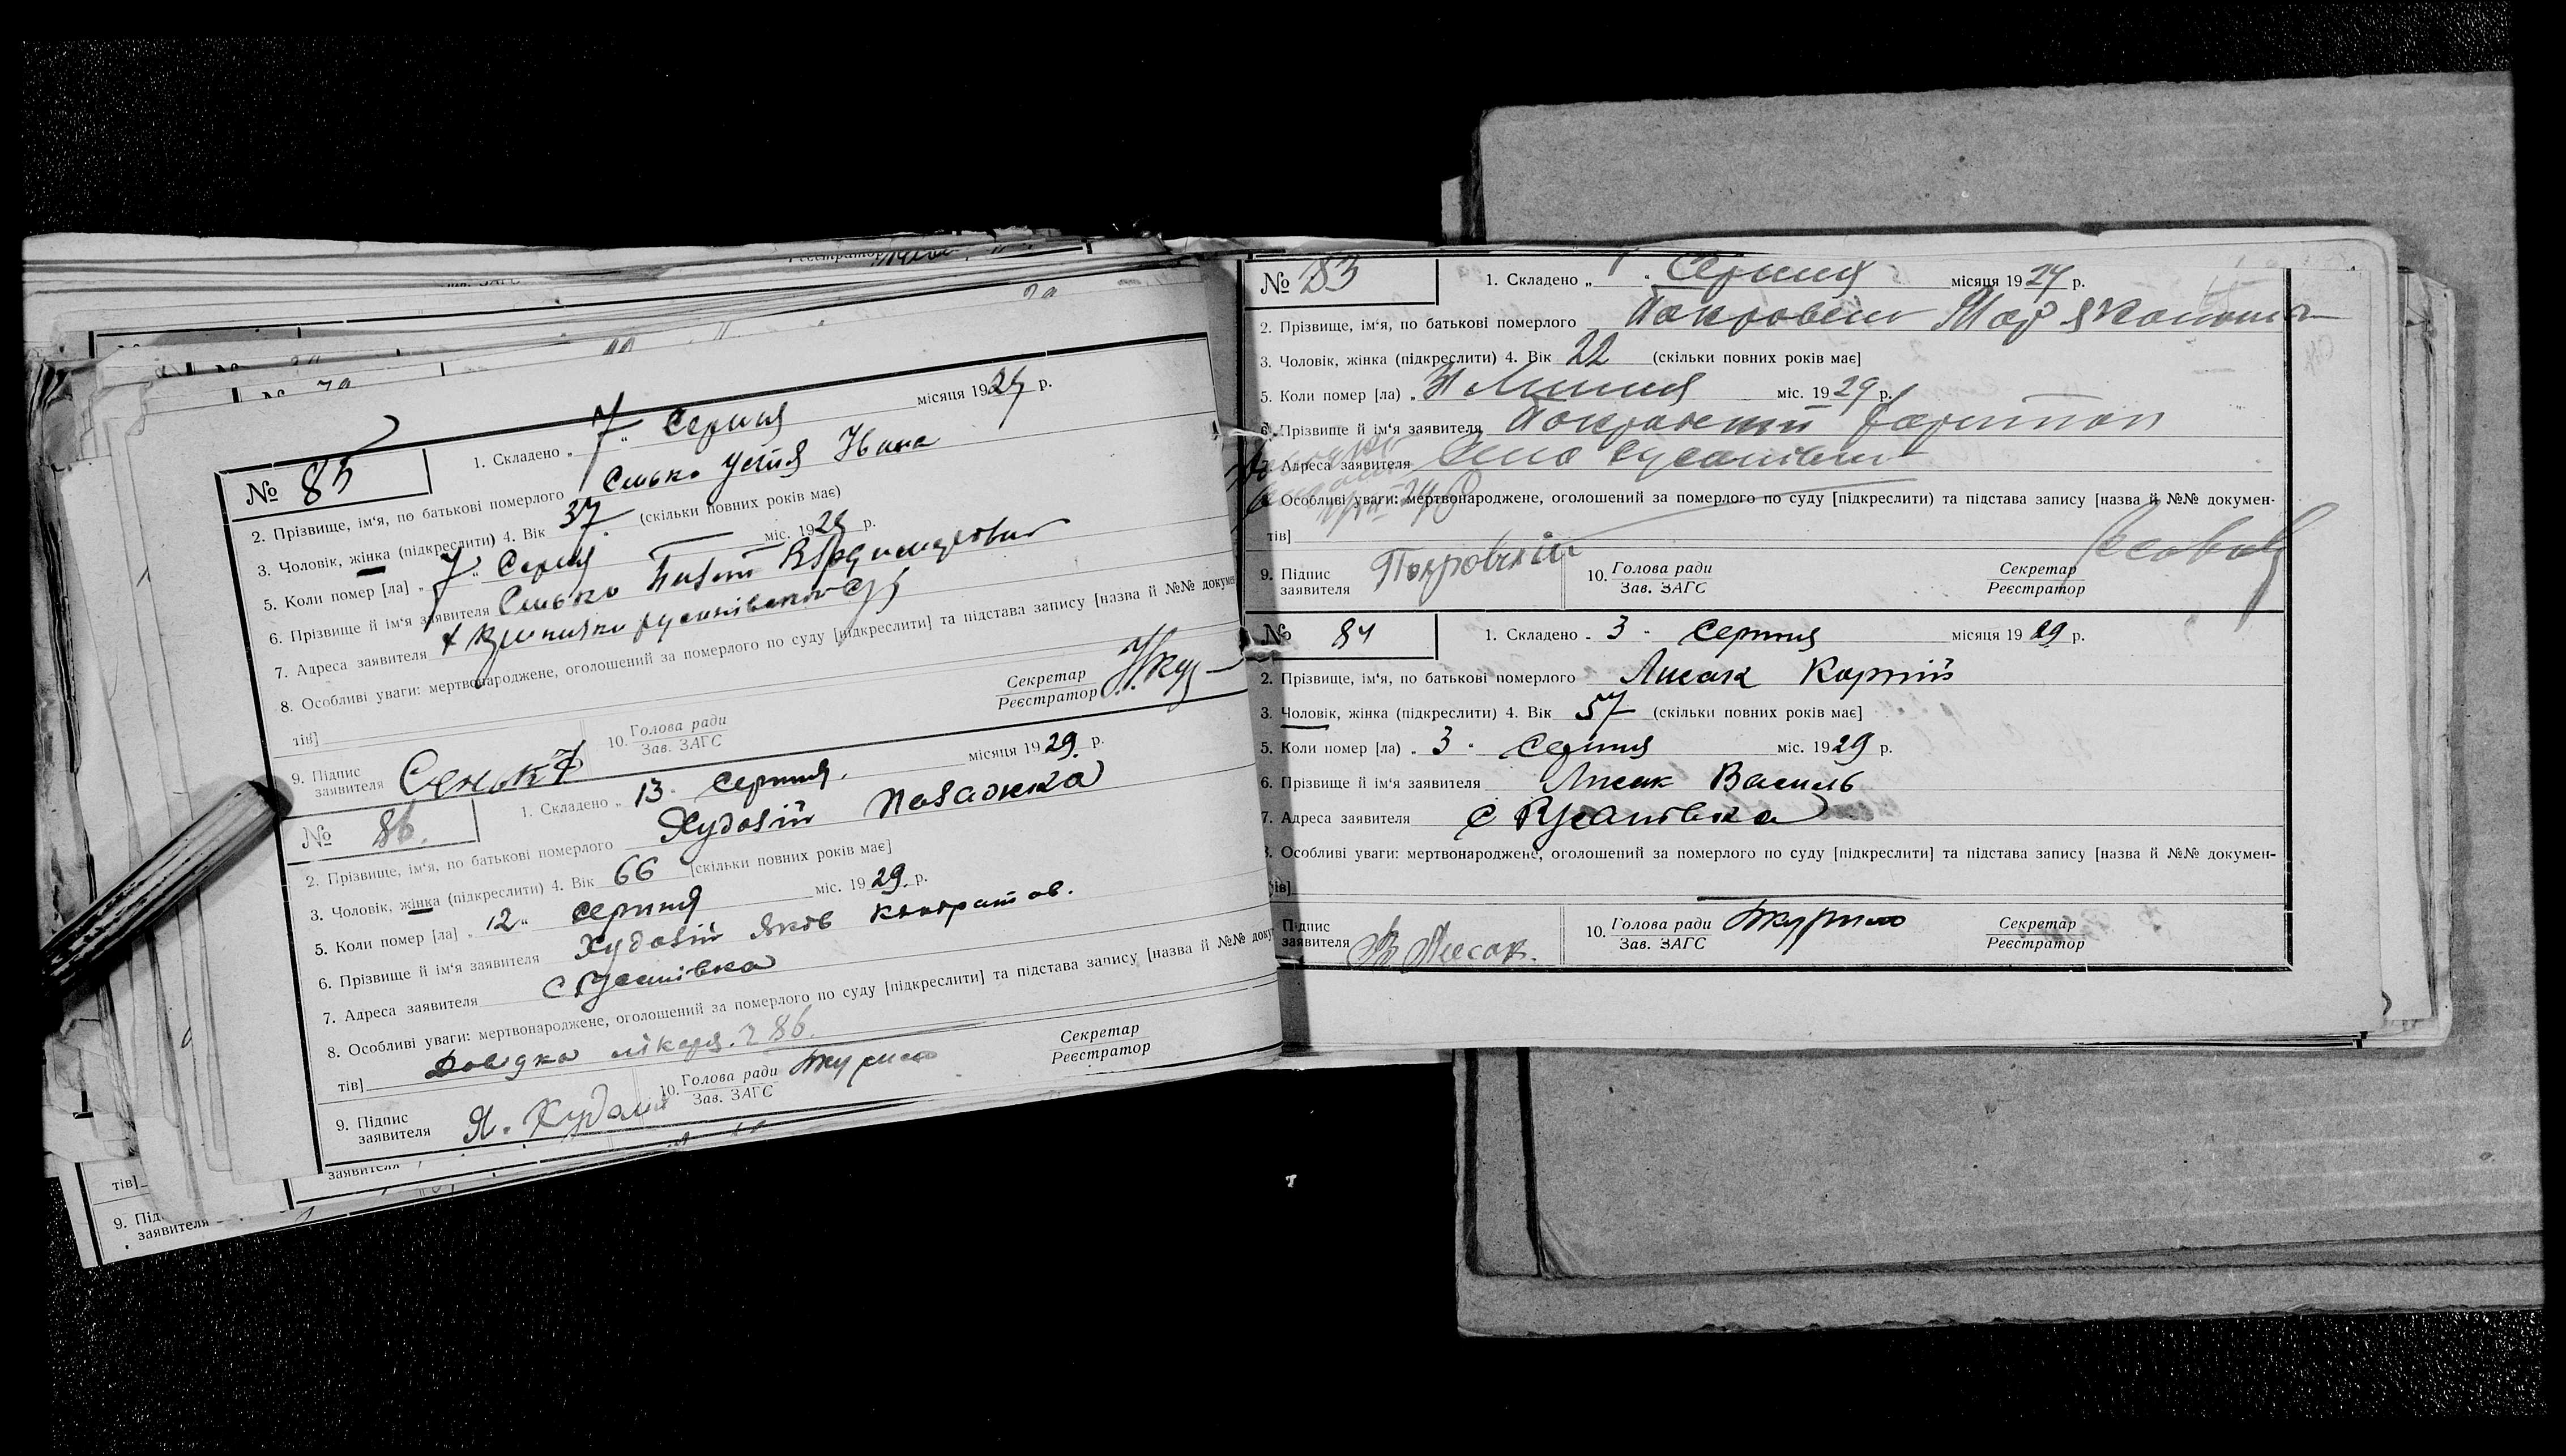 № 85
1. Складено „ 7 " Серпня місяця 1929 р.
2. Прізвище, ім'я, по батькові померлого Сенько Устія Ивана
3. Чоловік, жінка (підкреслити) 4. Вік 37 (скільки повних років має)
5. Коли помер [ла] „ 7 " Серпня міс. 1929 р.
6. Прізвище й ім'я заявителя Сенько
7. Адреса заявителя
8. Особливі уваги: мертвонароджене, оголошений за померлого по суду [підкреслити] та підстава запису [назва й №№ докумен
тів]
9. Підпис заявителя
10. Голова ради
Зав. ЗАГС
Секретар
Реєстратор
№ 86.
1. Складено „ 13 " серпня. місяця 1929. р.
2. Прізвище, ім'я, по батькові померлого Худолій Палажка
3. Чоловік, жінка (підкреслити) 4. Вік 66 [скільки повних років має]
5. Коли помер [ла] „ 12 " серпня міс. 1929. р.
6. Прізвище й ім'я заявителя Худолій Яків Кондратов.
7. Адреса заявителя с Русанівка
8. Особливі уваги: мертвонароджене, оголошений за померлого по суду [підкреслити] та підстава запису [назва й №№ доку
тів] Довідка лікаря. 286.
9. Підпис заявителя Я. Худолій
10. Голова ради
Зав. ЗАГС
Секретар
Реєстратор
заявителя
тів]
9. Під
заявителя
№ 83
1. Складено „ " Серпня місяця 1929 р.
2. Прізвище, ім'я, по батькові померлого
3. Чоловік, жінка (підкреслити) 4. Вік 22 (скільки повних років має]
5. Коли помер [ла) „ Липня міс. 1929 р.
6. Прізвище й ім'я заявителя Покровский
7. Адреса заявителя Село
8. Особливі уваги: мертвонароджене, оголошений за померлого по суду [підкреслити) та підстава запису [назва й №№ докумен-
тів]
9. Підпис заявителя Покровский
10. Голова ради
Зав. ЗАГС
Секретар
Реєстратор
№ 84
1. Складено „ 3 " серпня місяця 1929 р.
2. Прізвище, ім'я, по батькові померлого Лисак Карпій
3. Чоловік, жінка (підкреслити) 4. Вік 57 (скільки повних років має]
5. Коли помер [ла) „ 3 " серпня міс. 1929 р.
6. Прізвище й ім'я заявителя Лисак Василь
7. Адреса заявителя с Русанівка
8. Особливі уваги: мертвонароджене, оголошений за померлого по суду [підкреслити] та підстава запису [назва й №№ докумен-
тів]
Підпис заявителя В Лисак.
10. Голова ради
Зав. ЗАГС
Секретар
Реєстратор